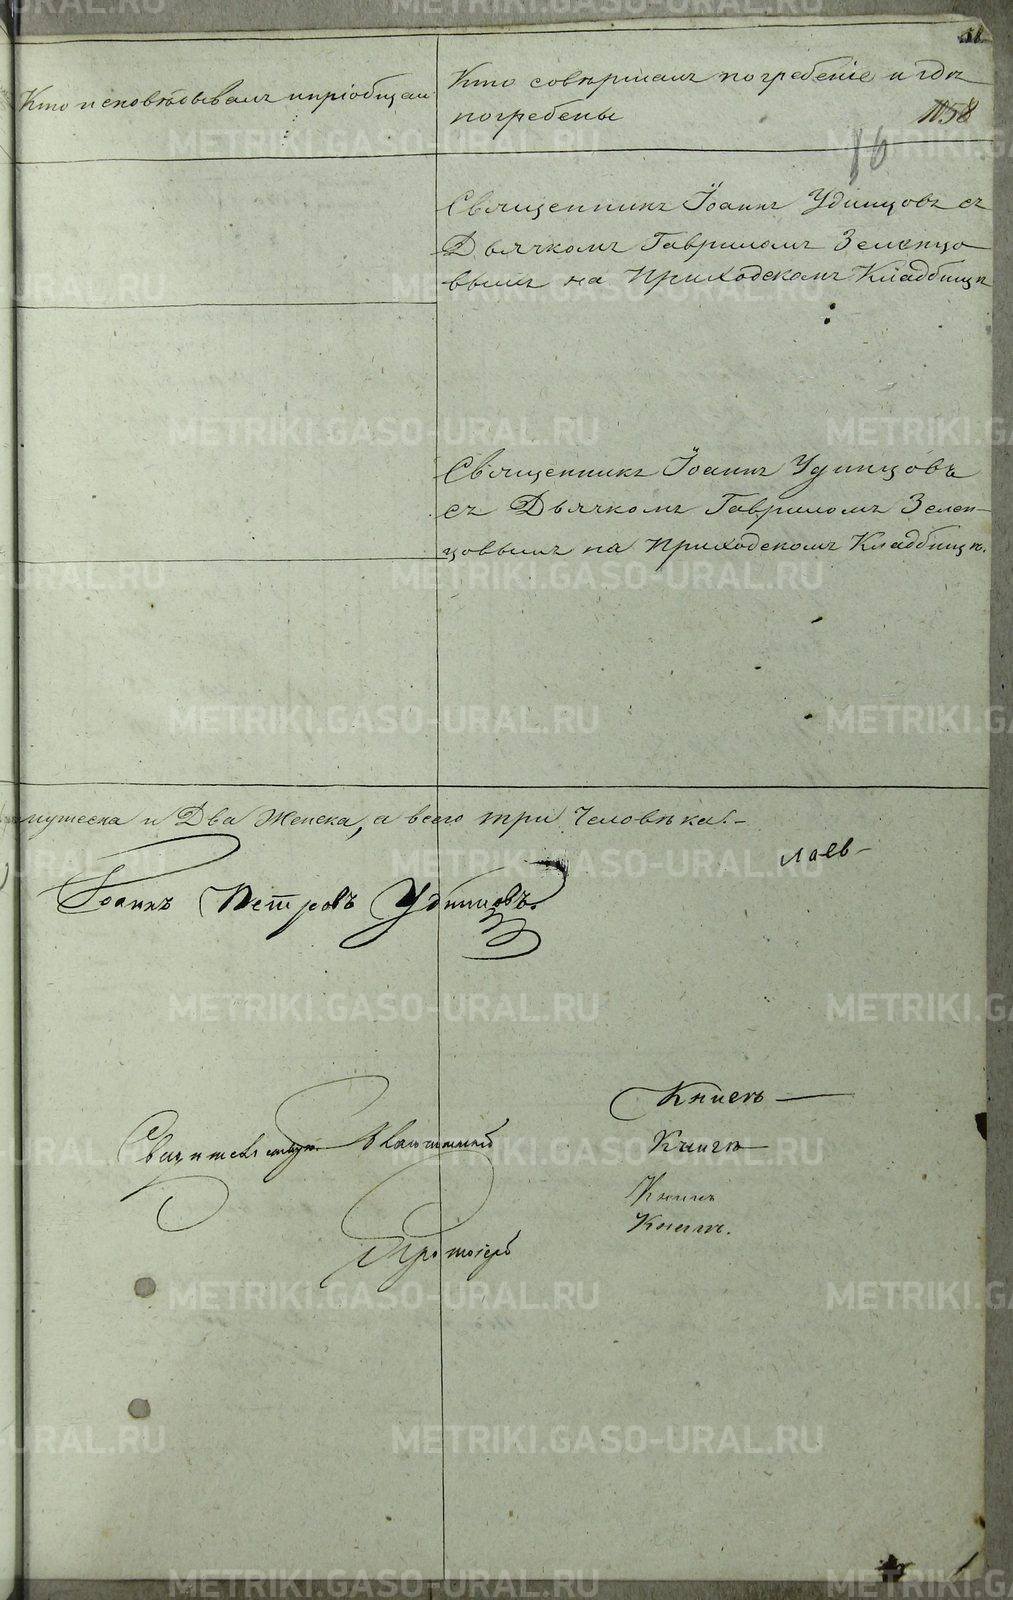 Кто исповѣдывалъ и пріобщалъ
Кто совѣршалъ погребеніе и гдѣ
погребены
1058
16
Священникъ Іоаннъ Удинцовъ съ
Дьячкомъ Гавриломъ Зеленцо
вымъ на Приходскомъ Кладбищѣ
Священникъ Іоаннъ Удинцовъ
съ Дьячкомъ Гавриломъ Зелен-
цовымъ на Приходскомъ Кладбищѣ.
мужеска и Два Женска, а всего три Человѣка.-
лаев-
Іоаннъ Петровъ Удинцовъ.
Протоіерей
METRIKI.GASO-URAL.RU